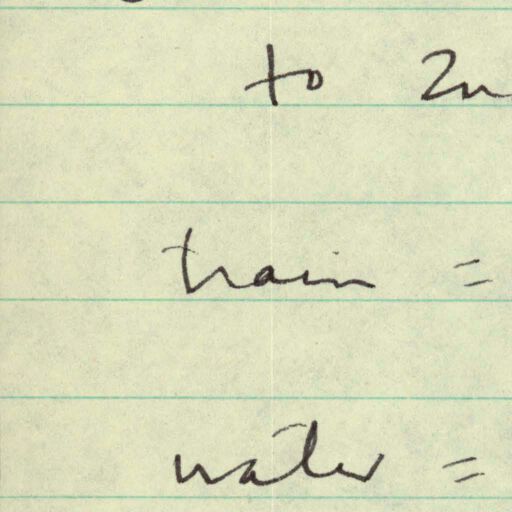 to 2n
train =
water =